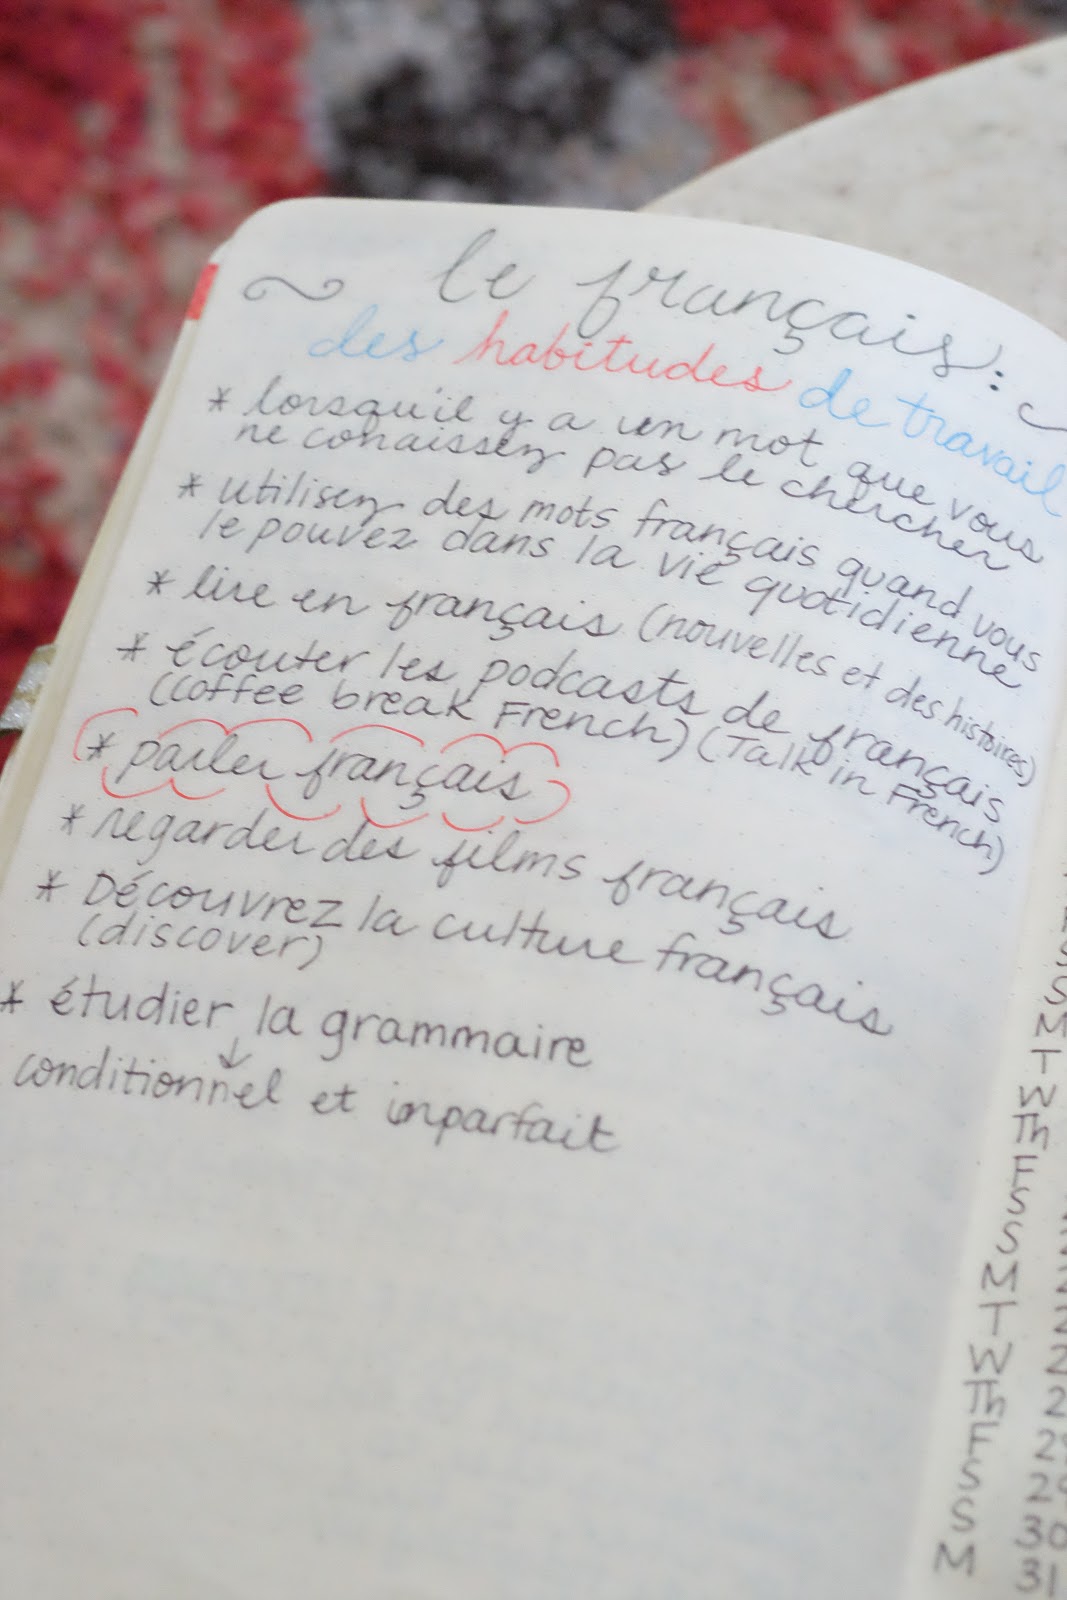 le français:
des habitudes de travail
* lorsqu'il y a un mot que vous
ne conaissez pas le chercher
* utilisez des mots français quand vous
le pouvez dans la vie quotidienne
* lire en français (nouvelles et des histoires)
* écouter les podcasts de français
(Coffee break French) (Talk in French)
* parler français
* regarder des films français
* Découvrez la culture français
(discover)
* étudier la grammaire
conditionnel et imparfait
S
M
T
W
Th
F
S
S
M
T
W
Th
F
S
S 30
M 31